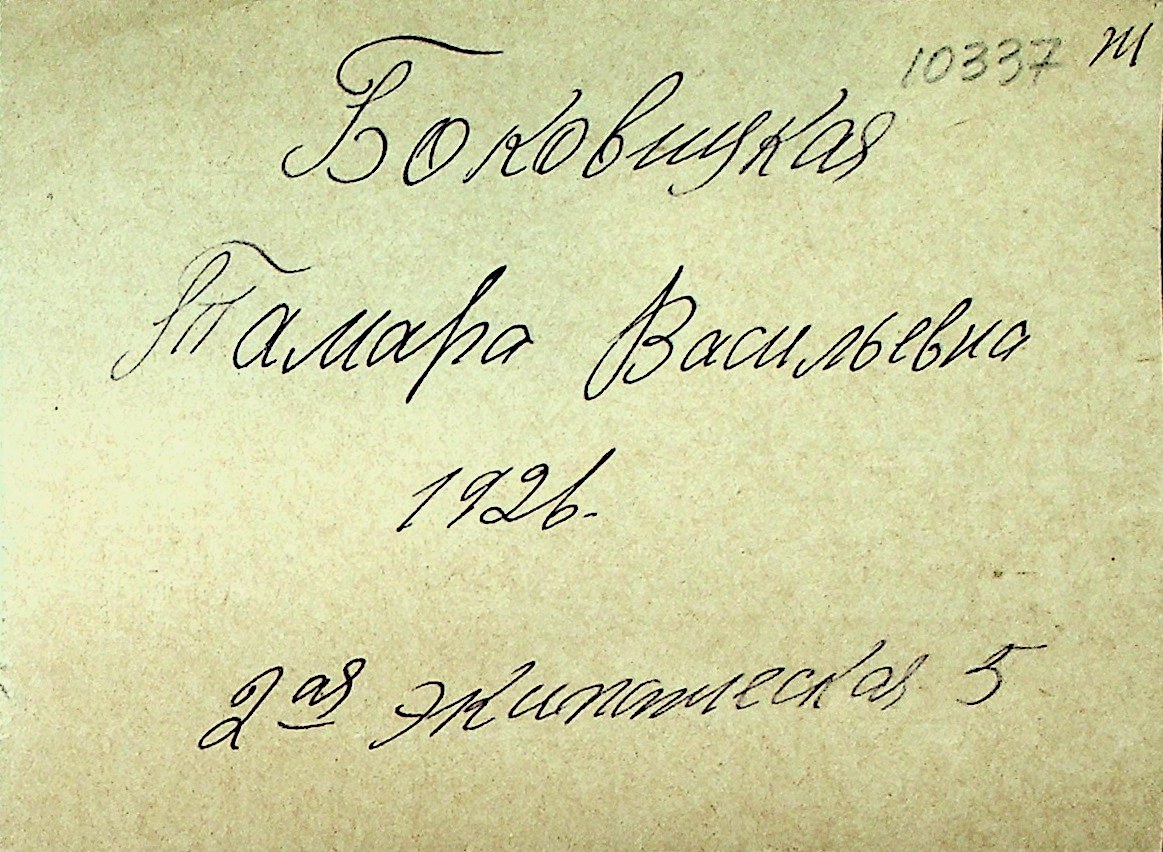 10337 Ж
Боковицкая
Тамара Васильевна
1926.
2ая Экипажеская 5